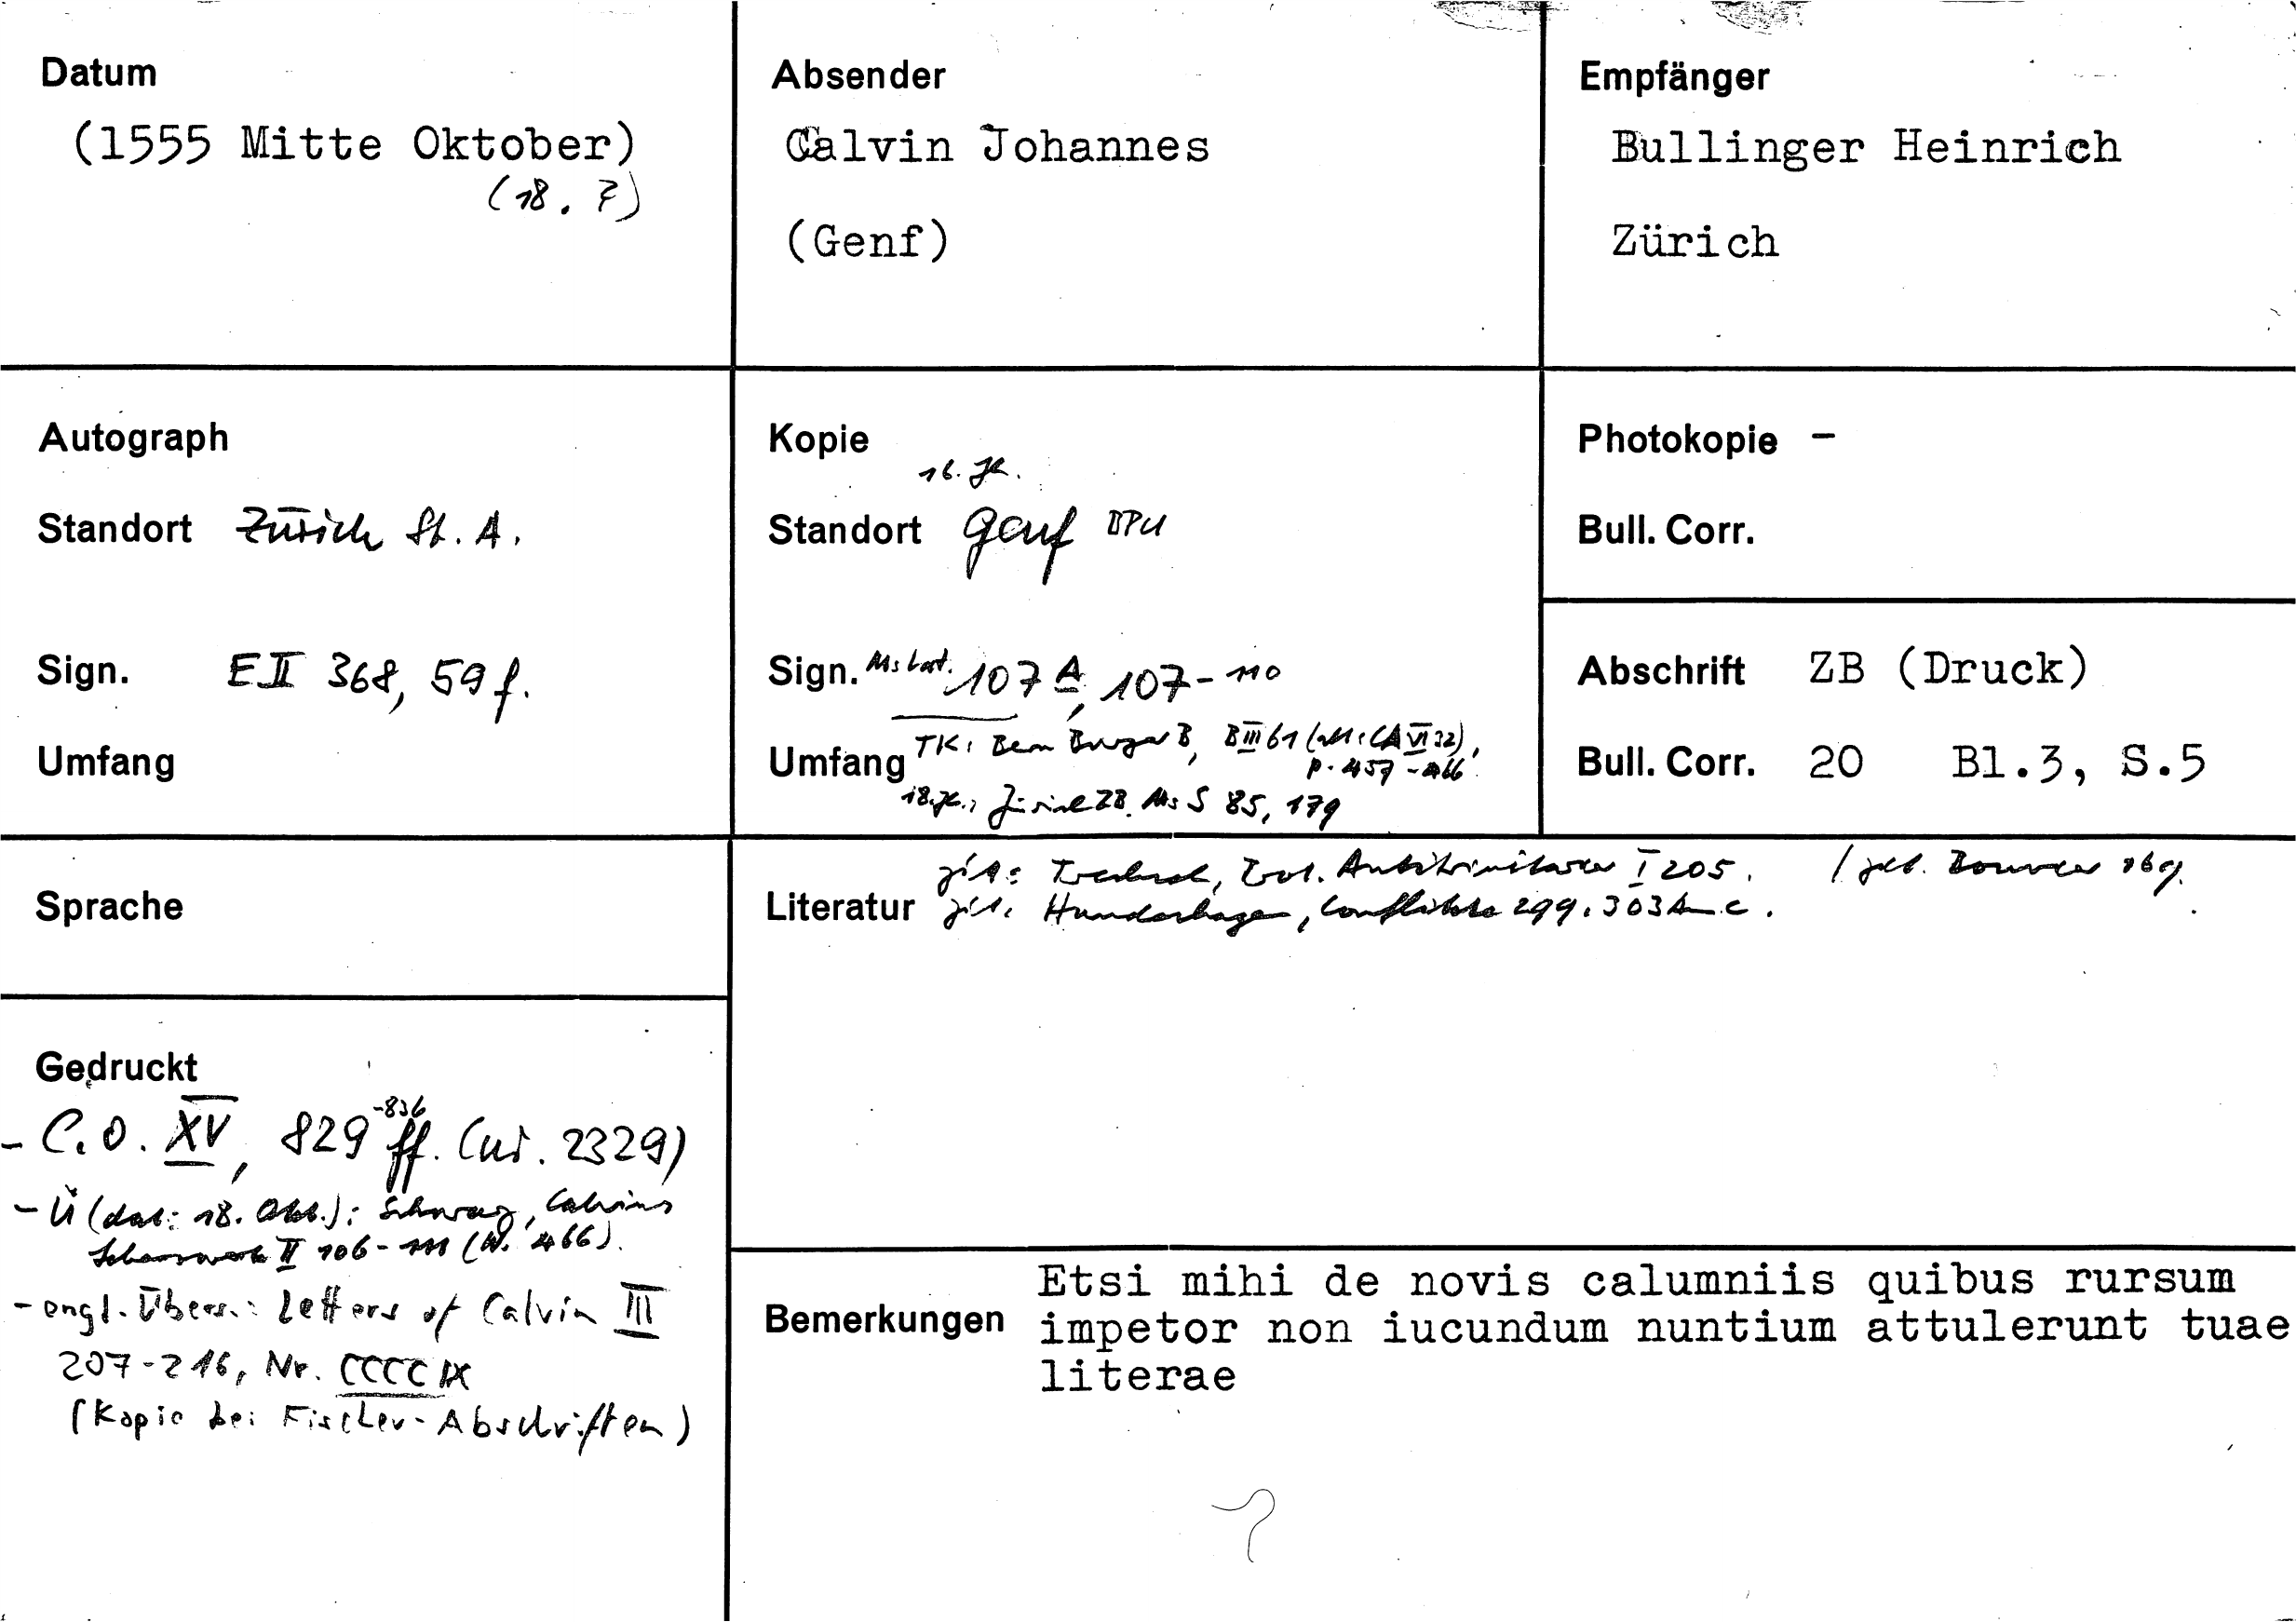 Datum
(1555 Mitte Oktober)
(18. ?)
Absender
Calvin Johannes
(Genf)
Empfänger
Bullinger Heinrich
Zürich
Autograph
Standort Zürich St. A.
Sign. E II 368, 59 f.
Umfang
Kopie
16. Jh.
Standort Genf BPU
Sign. Ms lat. 107 A, 107-110
TK: Bern Burger B, B III 61 (alt: CA VI 32),
Umfang p. 457-466
18. Jh.: Zürich ZB. Ms S 85, 179
Photokopie –
Bull. Corr.
Abschrift ZB (Druck)
Bull. Corr. 20 Bl.3, S.5
Sprache
zit: Trechsel, Prot. Antitrinitarier I 205.
Literatur zit. Hundeshagen, Conflikte 299. 303
Gedruckt
- C.O. XV, 829 -836 ff. (Nr. 2329)
- Ü (dat: 18. Okt.): Schwarz, Calvins
Lebenswerk II 106-111 (Nr. 466).
- engl. Übers.: Letters of Calvin III
207-216, Nr. CCCCIX
(Kopie bei Fischer-Abschriften)
Etsi mihi de novis calumniis quibus rursum
Bemerkungen impetor non iucundum nuntium attulerunt tuae
literae